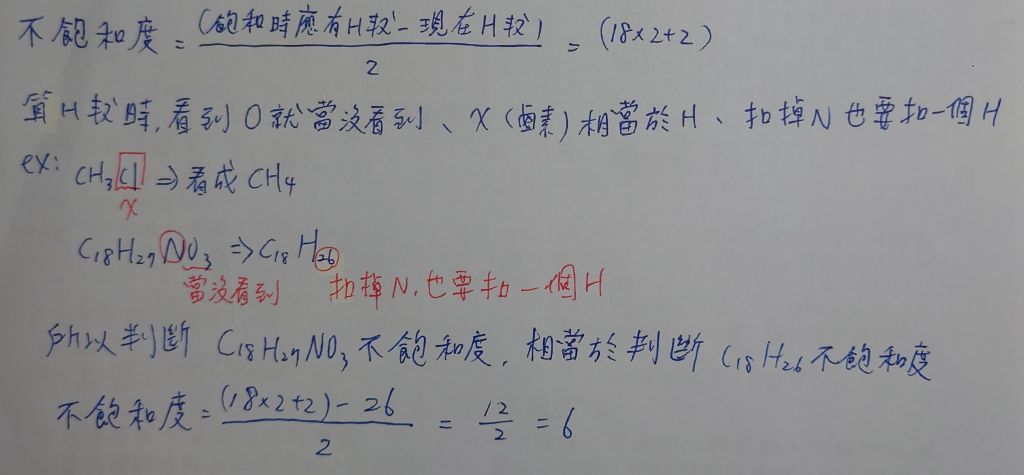 不飽和度 = (飽和時應有H數 - 現在H數) / 2 = (18×2+2)
算H數時,看到O就當沒看到、X(鹵素)相當於H、扣掉N也要扣一個H
ex: CH₃Cl ⇒ 看成 CH₄
X
C₁₈H₂₇NO₃ ⇒ C₁₈H₂₆
當沒看到 扣掉N,也要扣一個H
所以判斷 C₁₈H₂₇NO₃ 不飽和度,相當於判斷 C₁₈H₂₆ 不飽和度
不飽和度 = (18×2+2) - 26 / 2 = 12/2 = 6